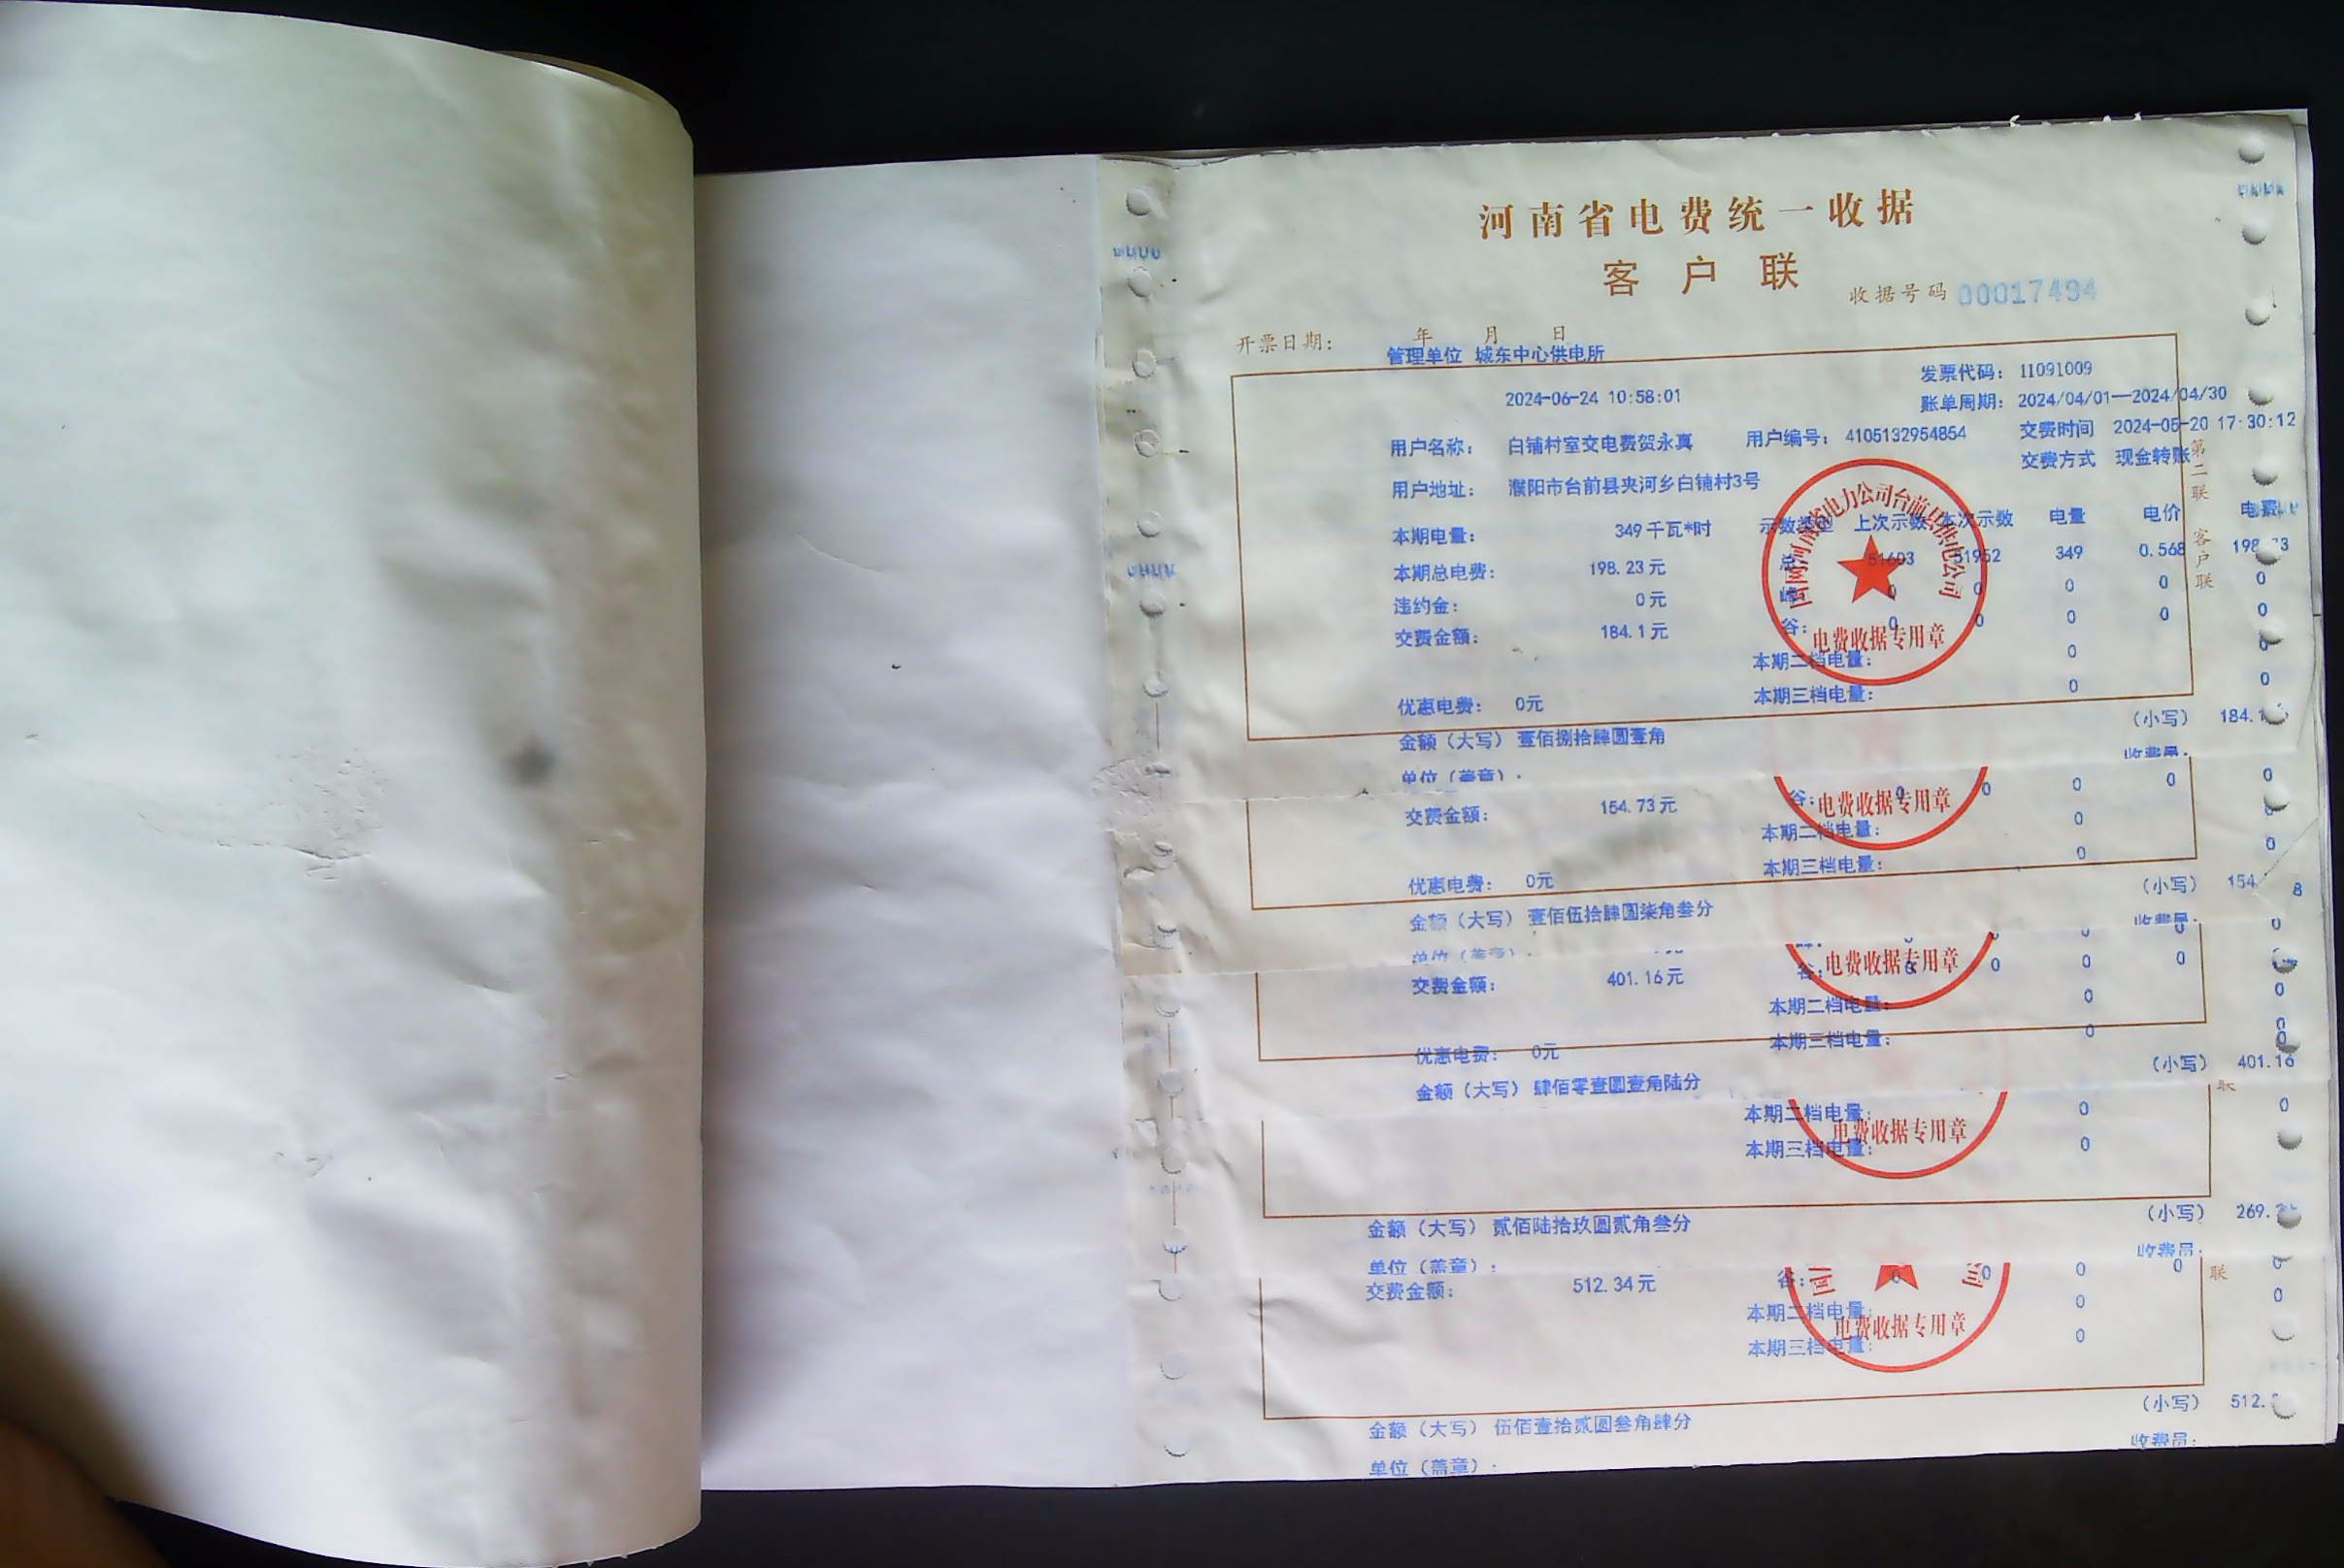 河南省电费统一收据
客户联
收据号码 00017494
开票日期： 年 月 日
管理单位 城东中心供电所
发票代码： 11091009
2024-06-24 10:58:01
账单周期： 2024/04/01—2024/04/30
用户名称： 白铺村室交电费贺永真 用户编号： 4105132954854 交费时间 2024-05-20 17:30:12
交费方式 现金转账
用户地址： 濮阳市台前县夹河乡白铺村3号
第二联 客户联
国网河南省电力公司台前县供电公司
电费收据专用章
本期电量： 349千瓦*时 示数类型 上次示数 本次示数 电量 电价 电费
本期总电费： 198.23元 总 51603 51952 349 0.568 198
违约金： 0元 0 0 0 0 0
交费金额： 184.1元 谷： 0 0 0 0 0
本期二档电量： 0 0
优惠电费： 0元 本期三档电量： 0 0
金额（大写） 壹佰捌拾肆圆壹角 （小写） 184.1
单位（盖章）： 收费员：
交费金额： 154.73元 谷： 0 0 0 0 0
电费收据专用章
本期二档电量： 0
优惠电费： 0元 本期三档电量： 0 0
金额（大写） 壹佰伍拾肆圆柒角叁分 （小写） 154
单位（盖章）： 收费员：
交费金额： 401.16元 谷： 0 0 0 0
电费收据专用章
本期二档电量： 0 0
优惠电费： 0元 本期三档电量： 0 0
金额（大写） 肆佰零壹圆壹角陆分 （小写） 401.16
联
本期二档电量： 0 0
电费收据专用章
本期三档电量： 0
金额（大写） 贰佰陆拾玖圆贰角叁分 （小写） 269.
单位（盖章）： 收费员：
交费金额： 512.34元 谷： 0 0 0 0 0
联
本期二档电量： 0 0
电费收据专用章
本期三档电量： 0
金额（大写） 伍佰壹拾贰圆叁角肆分 （小写） 512.
单位（盖章）： 收费员：